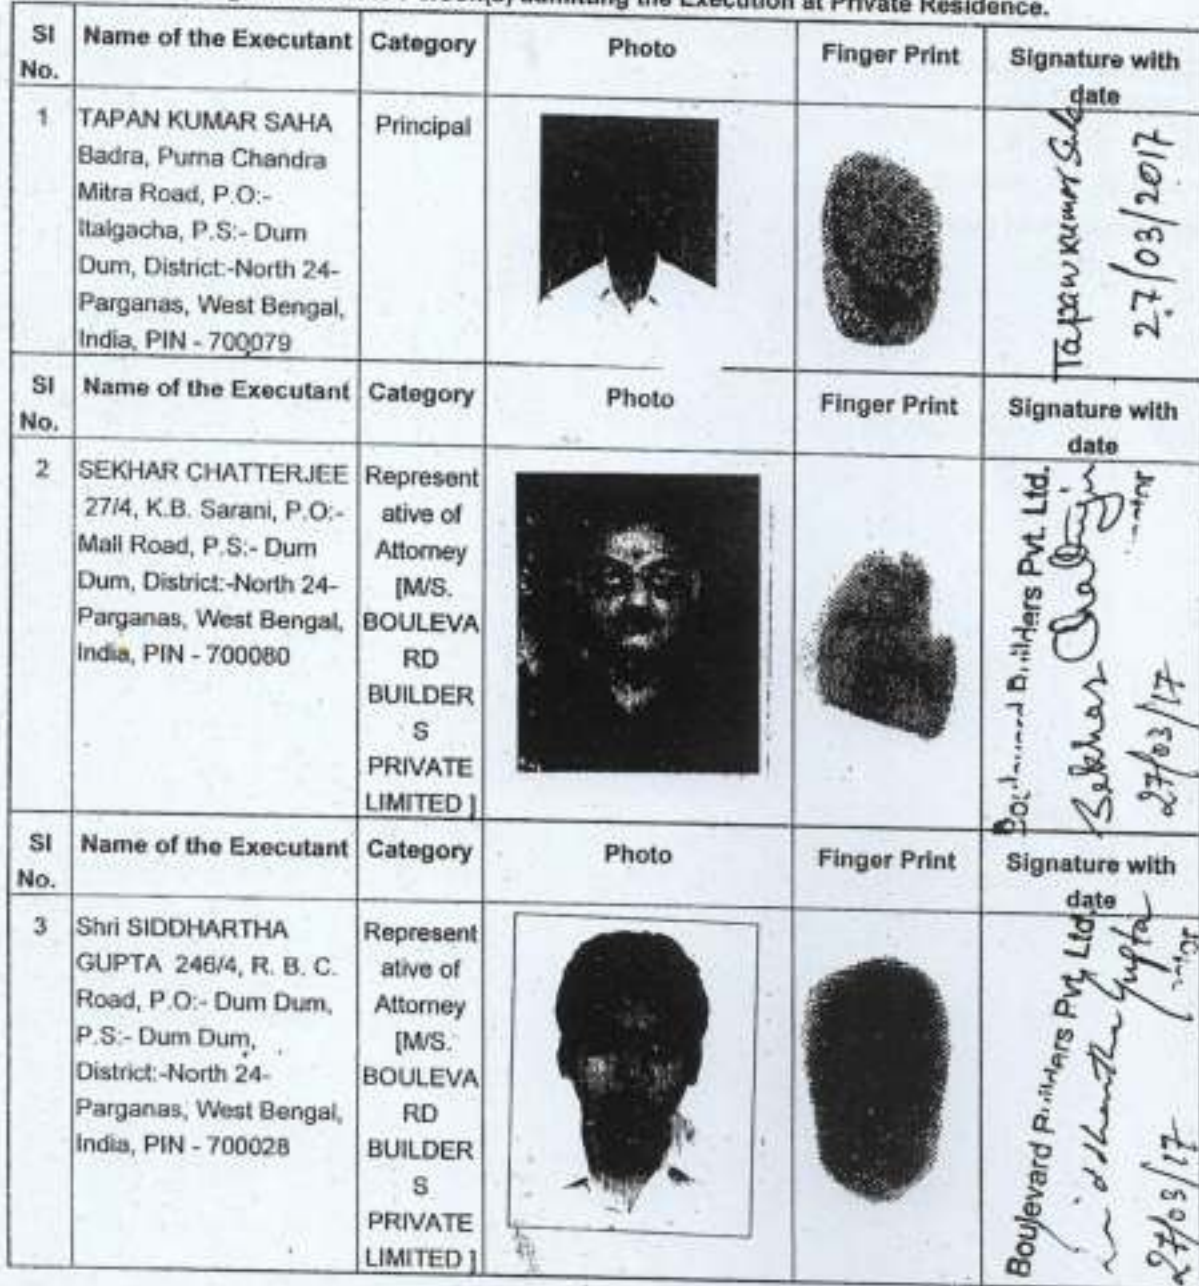 admitting the Execution at Private Residence.
SI No. Name of the Executant Category Photo Finger Print Signature with date
1
TAPAN KUMAR SAHA
Badra, Purna Chandra
Mitra Road, P.O:-
Italgacha, P.S:- Dum
Dum, District:-North 24-
Parganas, West Bengal,
India, PIN - 700079
Principal
Tapan Kumar Saha
27/03/2017
SI No. Name of the Executant Category Photo Finger Print Signature with date
2
SEKHAR CHATTERJEE
27/4, K.B. Sarani, P.O:-
Mall Road, P.S:- Dum
Dum, District:-North 24-
Parganas, West Bengal,
India, PIN - 700080
Represent
ative of
Attorney
[M/S.
BOULEVA
RD
BUILDER
S
PRIVATE
LIMITED ]
Builders Pvt. Ltd.
Sekhar Chatterjee
27/03/17
SI No. Name of the Executant Category Photo Finger Print Signature with date
3
Shri SIDDHARTHA
GUPTA 246/4, R. B. C.
Road, P.O:- Dum Dum,
P.S:- Dum Dum,
District:-North 24-
Parganas, West Bengal,
India, PIN - 700028
Represent
ative of
Attorney
[M/S.
BOULEVA
RD
BUILDER
S
PRIVATE
LIMITED ]
Boulevard Builders Pvt. Ltd.
Siddhartha Gupta
27/03/17